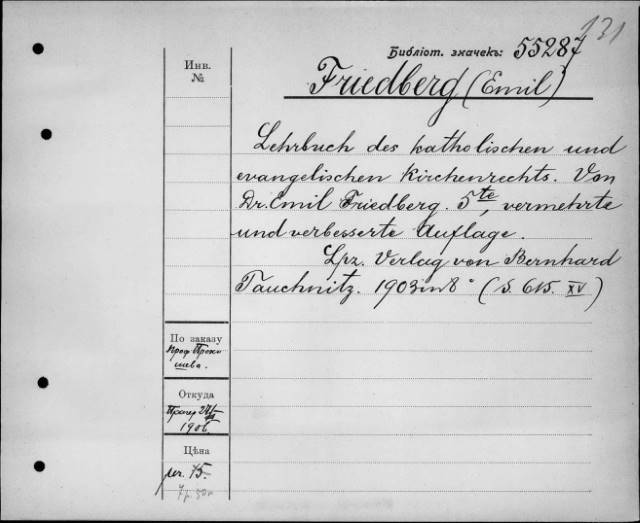 131
Библіот. значекъ: 55287
Инв.
№
Friedberg (Emil)
Lehrbuch des katholischen und
evangelischen Kirchenrechts. Von
Dr. Emil Friedberg. 5te, vermehrte
und verbesserte Auflage.
Lpz. Verlag von Bernhard
Tauchnitz. 1903 in 8° (S. 615. XV)
По заказу
проф.
Откуда
1906
Цѣна
75.